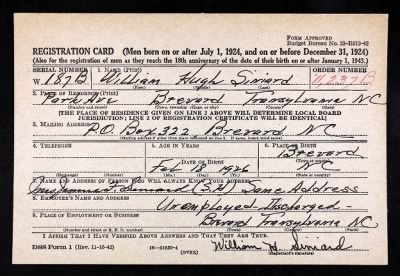 FORM APPROVED
Budget Bureau No. 33-R012-42
REGISTRATION CARD (Men born on or after July 1, 1924, and on or before December 31, 1924)
(Also for the registration of men as they reach the 18th anniversary of the date of their birth on or after January 1, 1943.)
SERIAL NUMBER 1. NAME (Print) ORDER NUMBER
W 187 B William Hugh Siniard
(First) (Middle) (Last)
2. PLACE OF RESIDENCE (Print)
Park Ave Brevard Transylvania NC
(Number and street) (Town, township, village, or city) (County) (State)
[THE PLACE OF RESIDENCE GIVEN ON LINE 2 ABOVE WILL DETERMINE LOCAL BOARD
JURISDICTION; LINE 2 OF REGISTRATION CERTIFICATE WILL BE IDENTICAL]
3. MAILING ADDRESS
P.O. Box 322 Brevard NC
4. TELEPHONE 5. AGE IN YEARS 6. PLACE OF BIRTH
Brevard
DATE OF BIRTH
Feb 18 1926 NC
7. NAME AND ADDRESS OF PERSON WHO WILL ALWAYS KNOW YOUR ADDRESS
Siniard Same Address
8. EMPLOYER'S NAME AND ADDRESS
Unemployed - Discharged -
9. PLACE OF EMPLOYMENT OR BUSINESS
Brevard Transylvania NC
(Number and street or R. F. D. number) (Town) (County) (State)
I AFFIRM THAT I HAVE VERIFIED ABOVE ANSWERS AND THAT THEY ARE TRUE.
DSS Form 1 (Rev. 11-16-42) (OVER) William H. Siniard
(Registrant's signature)